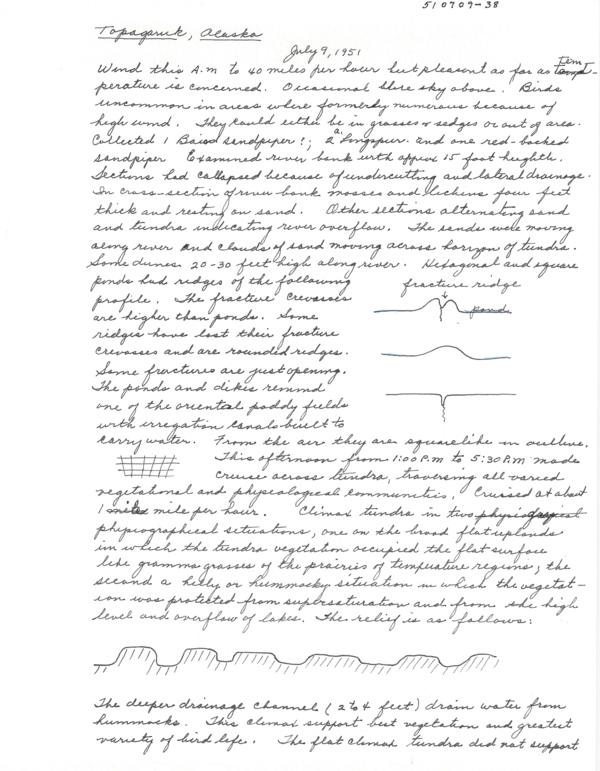 510709-38
Topagaruk, Alaska
July 9, 1951
Wind this A.m to 40 miles per hour but pleasant as far as Tem-
perature is concerned. Occasional blue sky above. Birds
uncommon in areas where formerly numerous because of
high wind. They could either be in grasses or sedges or out of area.
Collected 1 Baird sandpiper; 2 a. longspur. and one red-backed
sandpiper Examined river bank with approx 15 foot heighth.
Sections had collapsed because of undercutting and lateral drainage.
In cross-section of river bank mosses and lichens four feet
thick and resting on sand. Other sections alternating sand
and tundra indicating river overflow. The sands were moving
along river and clouds of sand moving across horizon of tundra.
Some dunes 20-30 feet high along river. Hexagonal and square
ponds had ridges of the following
profile. The fracture crevasses
are higher than ponds. Some
ridges have lost their fracture
crevasses and are rounded ridges.
Some fractures are just opening.
The ponds and dikes remind
one of the oriental paddy fields
with irregation canals built to
carry water. From the air they are squarelike in outline.
fracture ridge
pond
This afternoon from 1:00 P.m to 5:30 P.m made
cruise across tundra, traversing all varied
vegetational and physiological communities. Cruised at about
1 miles mile per hour. Climax tundra in two physiological
physiographical situations, one on the broad flat uplands
in which the tundra vegetation occupied the flat surface
like gramma grasses of the prairies of tempuature regions; the
second a hilly or hummocky situation in which the vegetat-
ion was protected from supersaturation and from the high
level and overflow of lakes. The relief is as follows:
The deeper drainage channel (2 to 4 feet) drain water from
hummocks. This climax support best vegetation and greatest
variety of bird life. The flat climax tundra did not support